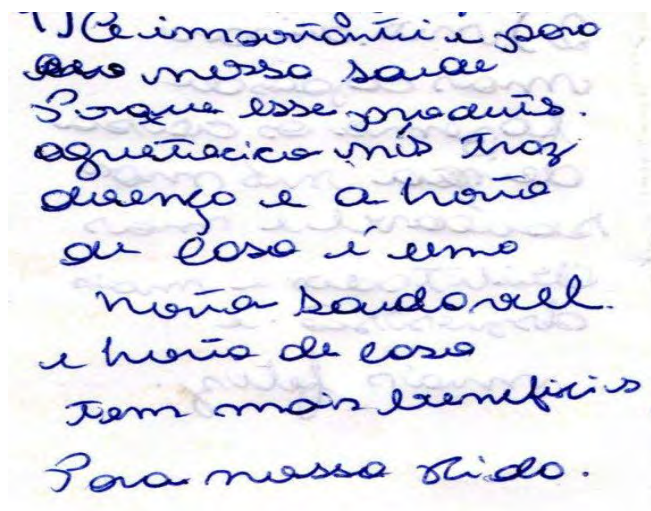 1) É importante e para
nossa saúde
Porque esse produto.
agrotocico nós traz
duença e a horta
de casa é uma
horta saudavell.
e horta de casa
tem mais beneficis
Para nossa vida.